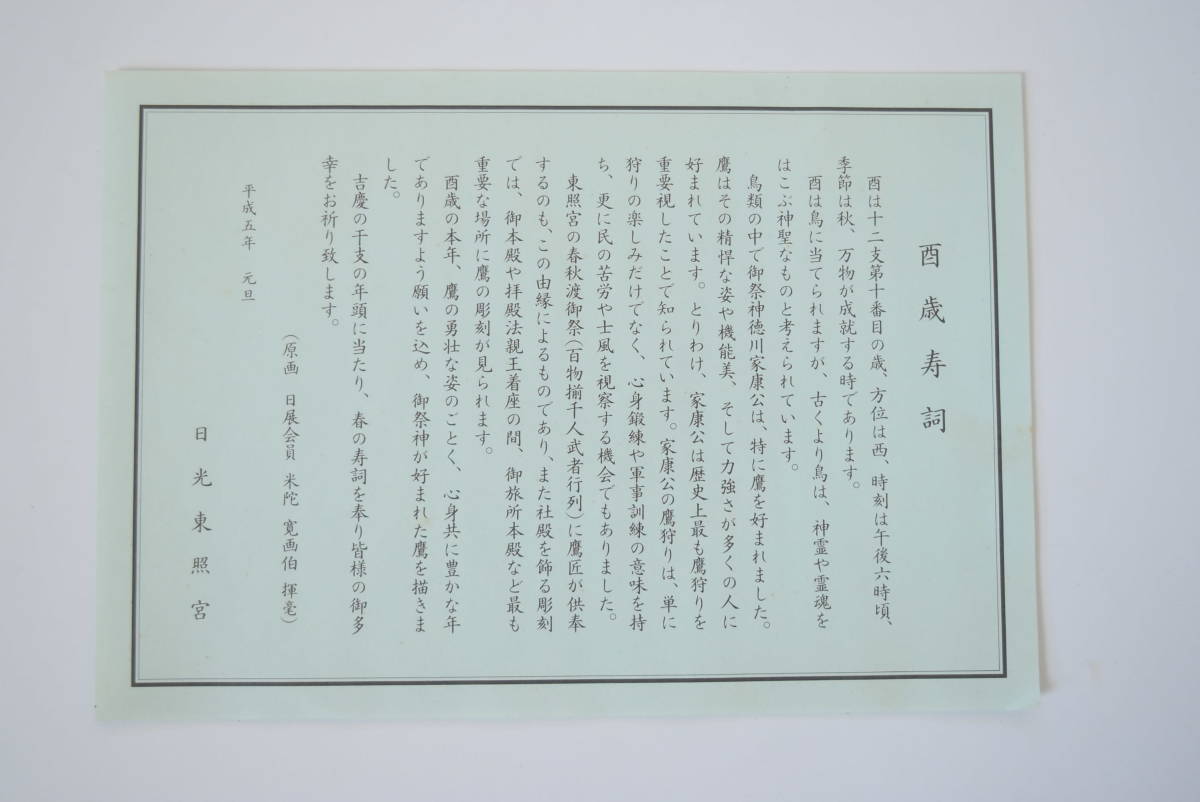 酉歳寿詞
酉は十二支第十番目の歳、方位は西、時刻は午後六時頃、
季節は秋、万物が成就する時であります。
酉は鳥に当てられますが、古くより鳥は、神霊や霊魂を
はこぶ神聖なものと考えられています。
鳥類の中で御祭神徳川家康公は、特に鷹を好まれました。
鷹はその精悍な姿や機能美、そして力強さが多くの人に
好まれています。とりわけ、家康公は歴史上最も鷹狩りを
重要視したことで知られています。家康公の鷹狩りは、単に
狩りの楽しみだけでなく、心身鍛練や軍事訓練の意味を持
ち、更に民の苦労や士風を視察する機会でもありました。
東照宮の春秋渡御祭(百物揃千人武者行列)に鷹匠が供奉
するのも、この由縁によるものであり、また社殿を飾る彫刻
では、御本殿や拝殿法親王着座の間、御旅所本殿など最も
重要な場所に鷹の彫刻が見られます。
酉歳の本年、鷹の勇壮な姿のごとく、心身共に豊かな年
でありますよう願いを込め、御祭神が好まれた鷹を描きま
した。
吉慶の干支の年頭に当たり、春の寿詞を奉り皆様の御多
幸をお祈り致します。
(原画 日展会員 米陀 寛画伯 揮毫)
平成五年 元旦
日光東照宮